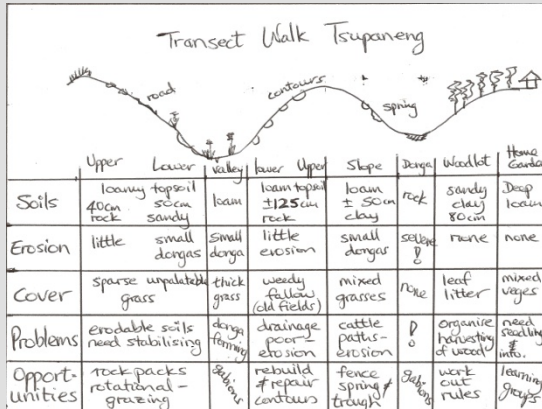 Transect Walk Tsupaneng
road
contours
spring
Upper Lower Valley lower Upper Slope Donga Woodlot Home Garden
Soils
loamy topsoil
40cm 50cm
rock sandy
loam
loam topsoil
±125cm
rock
loam
± 50cm
clay
rock
sandy
clay
80cm
Deep
loam
Erosion
little small
dongas
small
donga
little
erosion
small
dongas
severe
!
none
none
Cover
sparse unpalatable
grass
thick
grass
weedy
fallow
(old fields)
mixed
grasses
none
leaf
litter
mixed
veges
Problems
erodable soils
need stabilising
donga
forming
drainage
poor-
erosion
cattle
paths-
erosion
!
organise
harvesting
of wood
need
seedling
& info.
Opport-
unities
rock packs
rotational-
grazing
gabions
rebuild
& repair
contours
fence
spring &
trough
gabions
work
out
rules
learning
groups